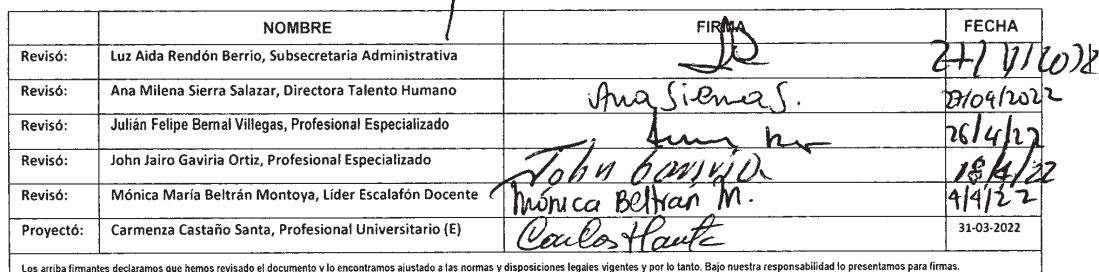 NOMBRE FIRMA FECHA
Revisó: Luz Aida Rendón Berrio, Subsecretaria Administrativa
Revisó: Ana Milena Sierra Salazar, Directora Talento Humano Ana Sierra S. 27/04/2022
Revisó: Julián Felipe Bernal Villegas, Profesional Especializado 26/4/22
Revisó: John Jairo Gaviria Ortiz, Profesional Especializado John Gaviria 18/4/22
Revisó: Mónica María Beltrán Montoya, Líder Escalafón Docente Mónica Beltrán M. 4/4/22
Proyectó: Carmenza Castaño Santa, Profesional Universitario (E) 31-03-2022
Los arriba firmantes declaramos que hemos revisado el documento y lo encontramos ajustado a las normas y disposiciones legales vigentes y por lo tanto. Bajo nuestra responsabilidad lo presentamos para firmas.